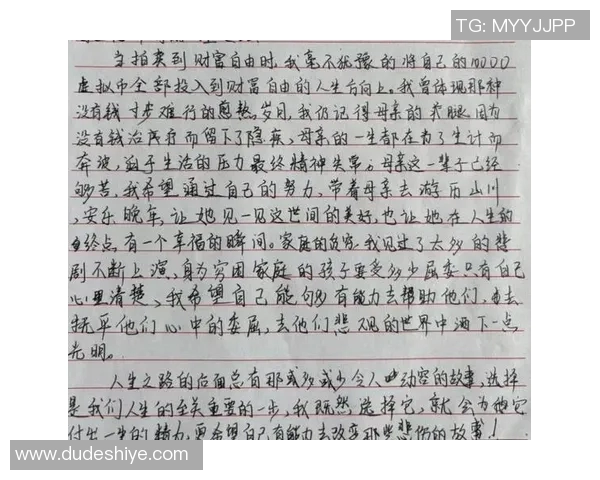 TG: MYYJJPP
当拍卖到财富自由时,我毫不犹豫的将自己的10000
虚拟币全部投入到财富自由的人生方向上。我曾体现那种
没有钱寸步难行的煎熬岁月,我仍记得母亲的 腿因为
没有钱治疗而留下了隐疾,母亲的一生都在为了生计而
奔波,迫于生活的压力最终精神失常。母亲这一辈子已经
够苦,我希望通过自己的努力,带着母亲去游历山川
,安乐晚年,让她见一见这世间的美好,也让她在人生的
终点有一个幸福的瞬间。家庭的贫穷,我见过了太多的悲
剧不断上演,身为穷困家庭的孩子要受多少屈委只有自己
心里清楚,我希望自己能够有能力去帮助他们,去
抚平他们心中的委屈,去他们悲观的世界中洒下一点
光明。
人生之路的后面总有那或多或少令人动容的故事,选择
是我们人生的至关重要的一步,我既然选择它,就会为他
付出一生的精力,更希望自己有能力去改变那些悲伤的故事!
www.dudeshiye.com